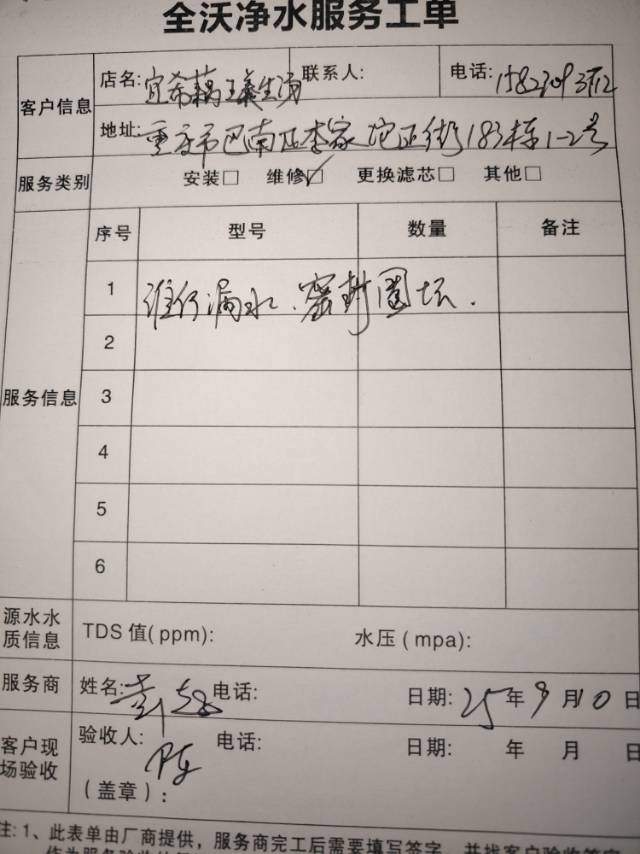 全沃净水服务工单
客户信息 店名: 联系人: 电话:
地址: 重庆市巴南区李家沱正街183栋1-2号
服务类别 安装□ 维修☑ 更换滤芯□ 其他□
服务信息 序号 型号 数量 备注
1 漏水、密封圈坏.
2
3
4
5
6
源水水质信息 TDS 值(ppm): 水压(mpa):
服务商 姓名: 电话: 日期: 25年9月10日
客户现场验收 验收人: 电话: 日期: 年 月 日
(盖章):
注: 1、此表单由厂商提供，服务商完工后需要填写签字，并找客户验收签字